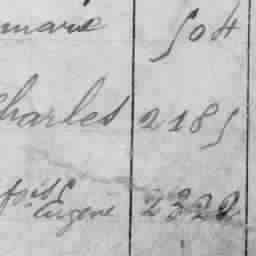 marie 504
Charles 2185
fois Eugene 2322